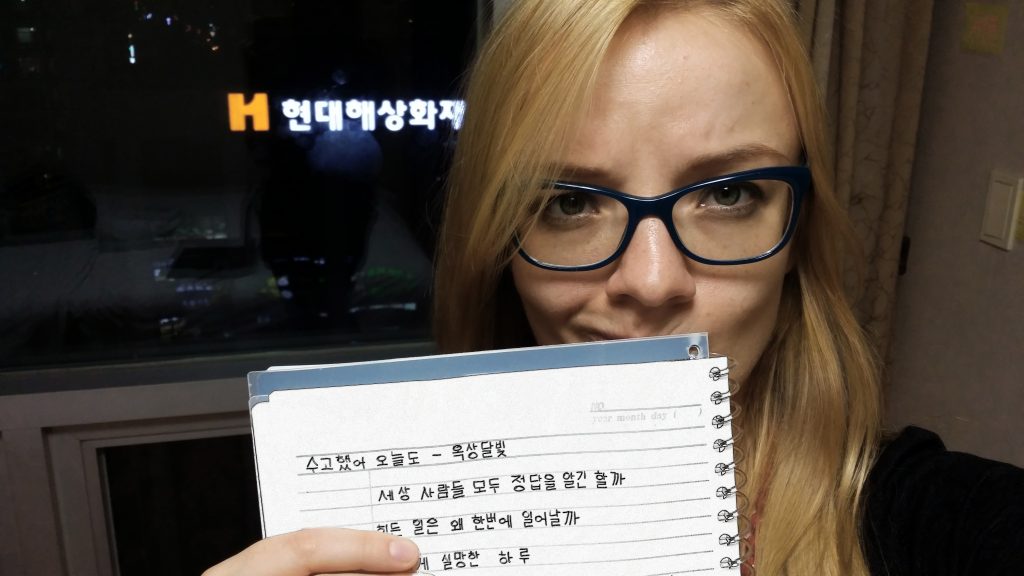 H 현대해상화재
NO
year month day ( )
수고했어 오늘도 - 옥상달빛
세상 사람들 모두 정답을 알긴 할까
힘든 일은 왜 한번에 일어날까
실망한 하루